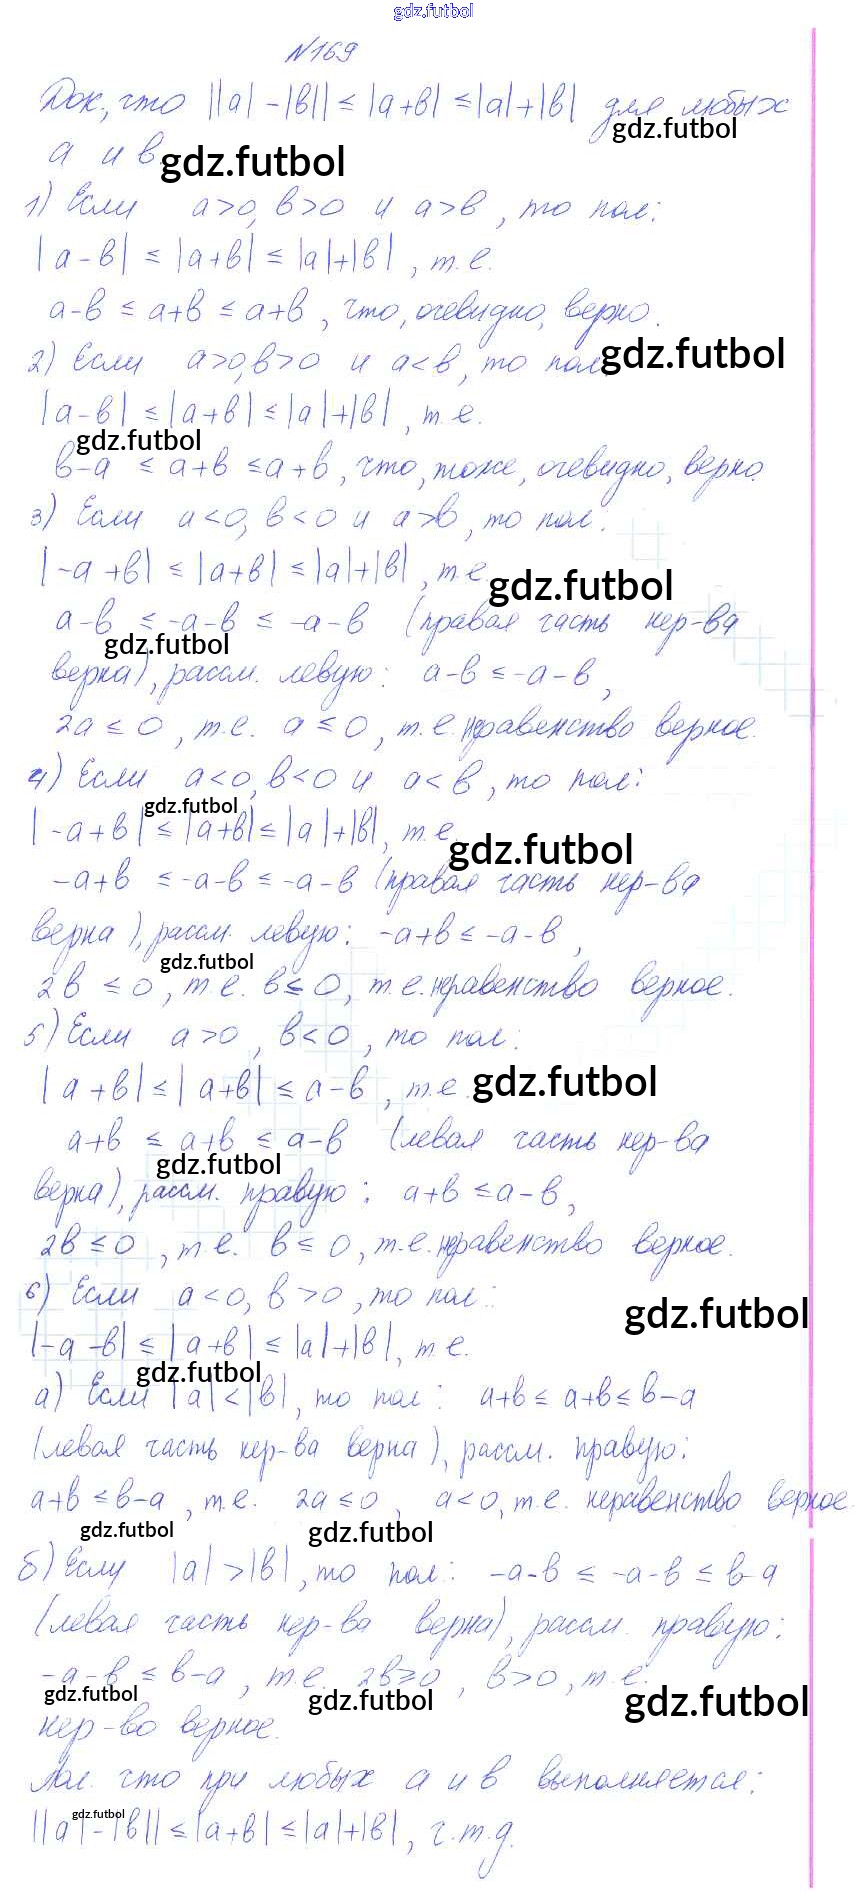 gdz.futbol
N169
Док, что ||a|-|в|| ≤ |a+в| ≤ |a|+|в| для любых
gdz.futbol
a и в.
gdz.futbol
1) Если a>0, в>0 и a>в, то пол:
|a-в| ≤ |a+в| ≤ |a|+|в|, т.е.
a-в ≤ a+в ≤ a+в, что, очевидно, верно.
2) Если a>0, в>0 и a<в, то пол:
gdz.futbol
|a-в| ≤ |a+в| ≤ |a|+|в|, т.е.
gdz.futbol
в-a ≤ a+в ≤ a+в, что, тоже, очевидно, верно.
3) Если a<0, в<0 и a>в, то пол.
|-a+в| ≤ |a+в| ≤ |a|+|в|, т.е.
gdz.futbol
a-в ≤ -a-в ≤ -a-в (правая часть нер-ва
gdz.futbol
верна), рассм. левую: a-в ≤ -a-в,
2a ≤ 0, т.е. a ≤ 0, т.е. неравенство верное.
4) Если a<0, в<0 и a<в, то пол:
gdz.futbol
|-a+в| ≤ |a+в| ≤ |a|+|в|, т.е.
gdz.futbol
-a+в ≤ -a-в ≤ -a-в (правая часть нер-ва
верна), рассм. левую: -a+в ≤ -a-в,
gdz.futbol
2в ≤ 0, т.е. в ≤ 0, т.е. неравенство верное.
5) Если a>0, в<0, то пол:
|a+в| ≤ |a+в| ≤ a-в, т.е.
gdz.futbol
a+в ≤ a+в ≤ a-в (левая часть нер-ва
gdz.futbol
верна), рассм. правую: a+в ≤ a-в,
2в ≤ 0, т.е. в ≤ 0, т.е. неравенство верное.
6) Если a<0, в>0, то пол:
gdz.futbol
|-a-в| ≤ |a+в| ≤ |a|+|в|, т.е.
gdz.futbol
а) Если |a|<|в|, то пол: a+в ≤ a+в ≤ в-a
(левая часть нер-ва верна), рассм. правую:
a+в ≤ в-a, т.е. 2a ≤ 0, a<0, т.е. неравенство верное.
gdz.futbol
gdz.futbol
б) Если |a|>|в|, то пол: -a-в ≤ -a-в ≤ в-a
(левая часть нер-ва верна), рассм. правую:
-a-в ≤ в-a, т.е. 2в ≥ 0, в>0, т.е.
gdz.futbol
gdz.futbol
gdz.futbol
нер-во верное.
Пол. что при любых a и в выполняется:
gdz.futbol
||a|-|в|| ≤ |a+в| ≤ |a|+|в|, ч.т.д.